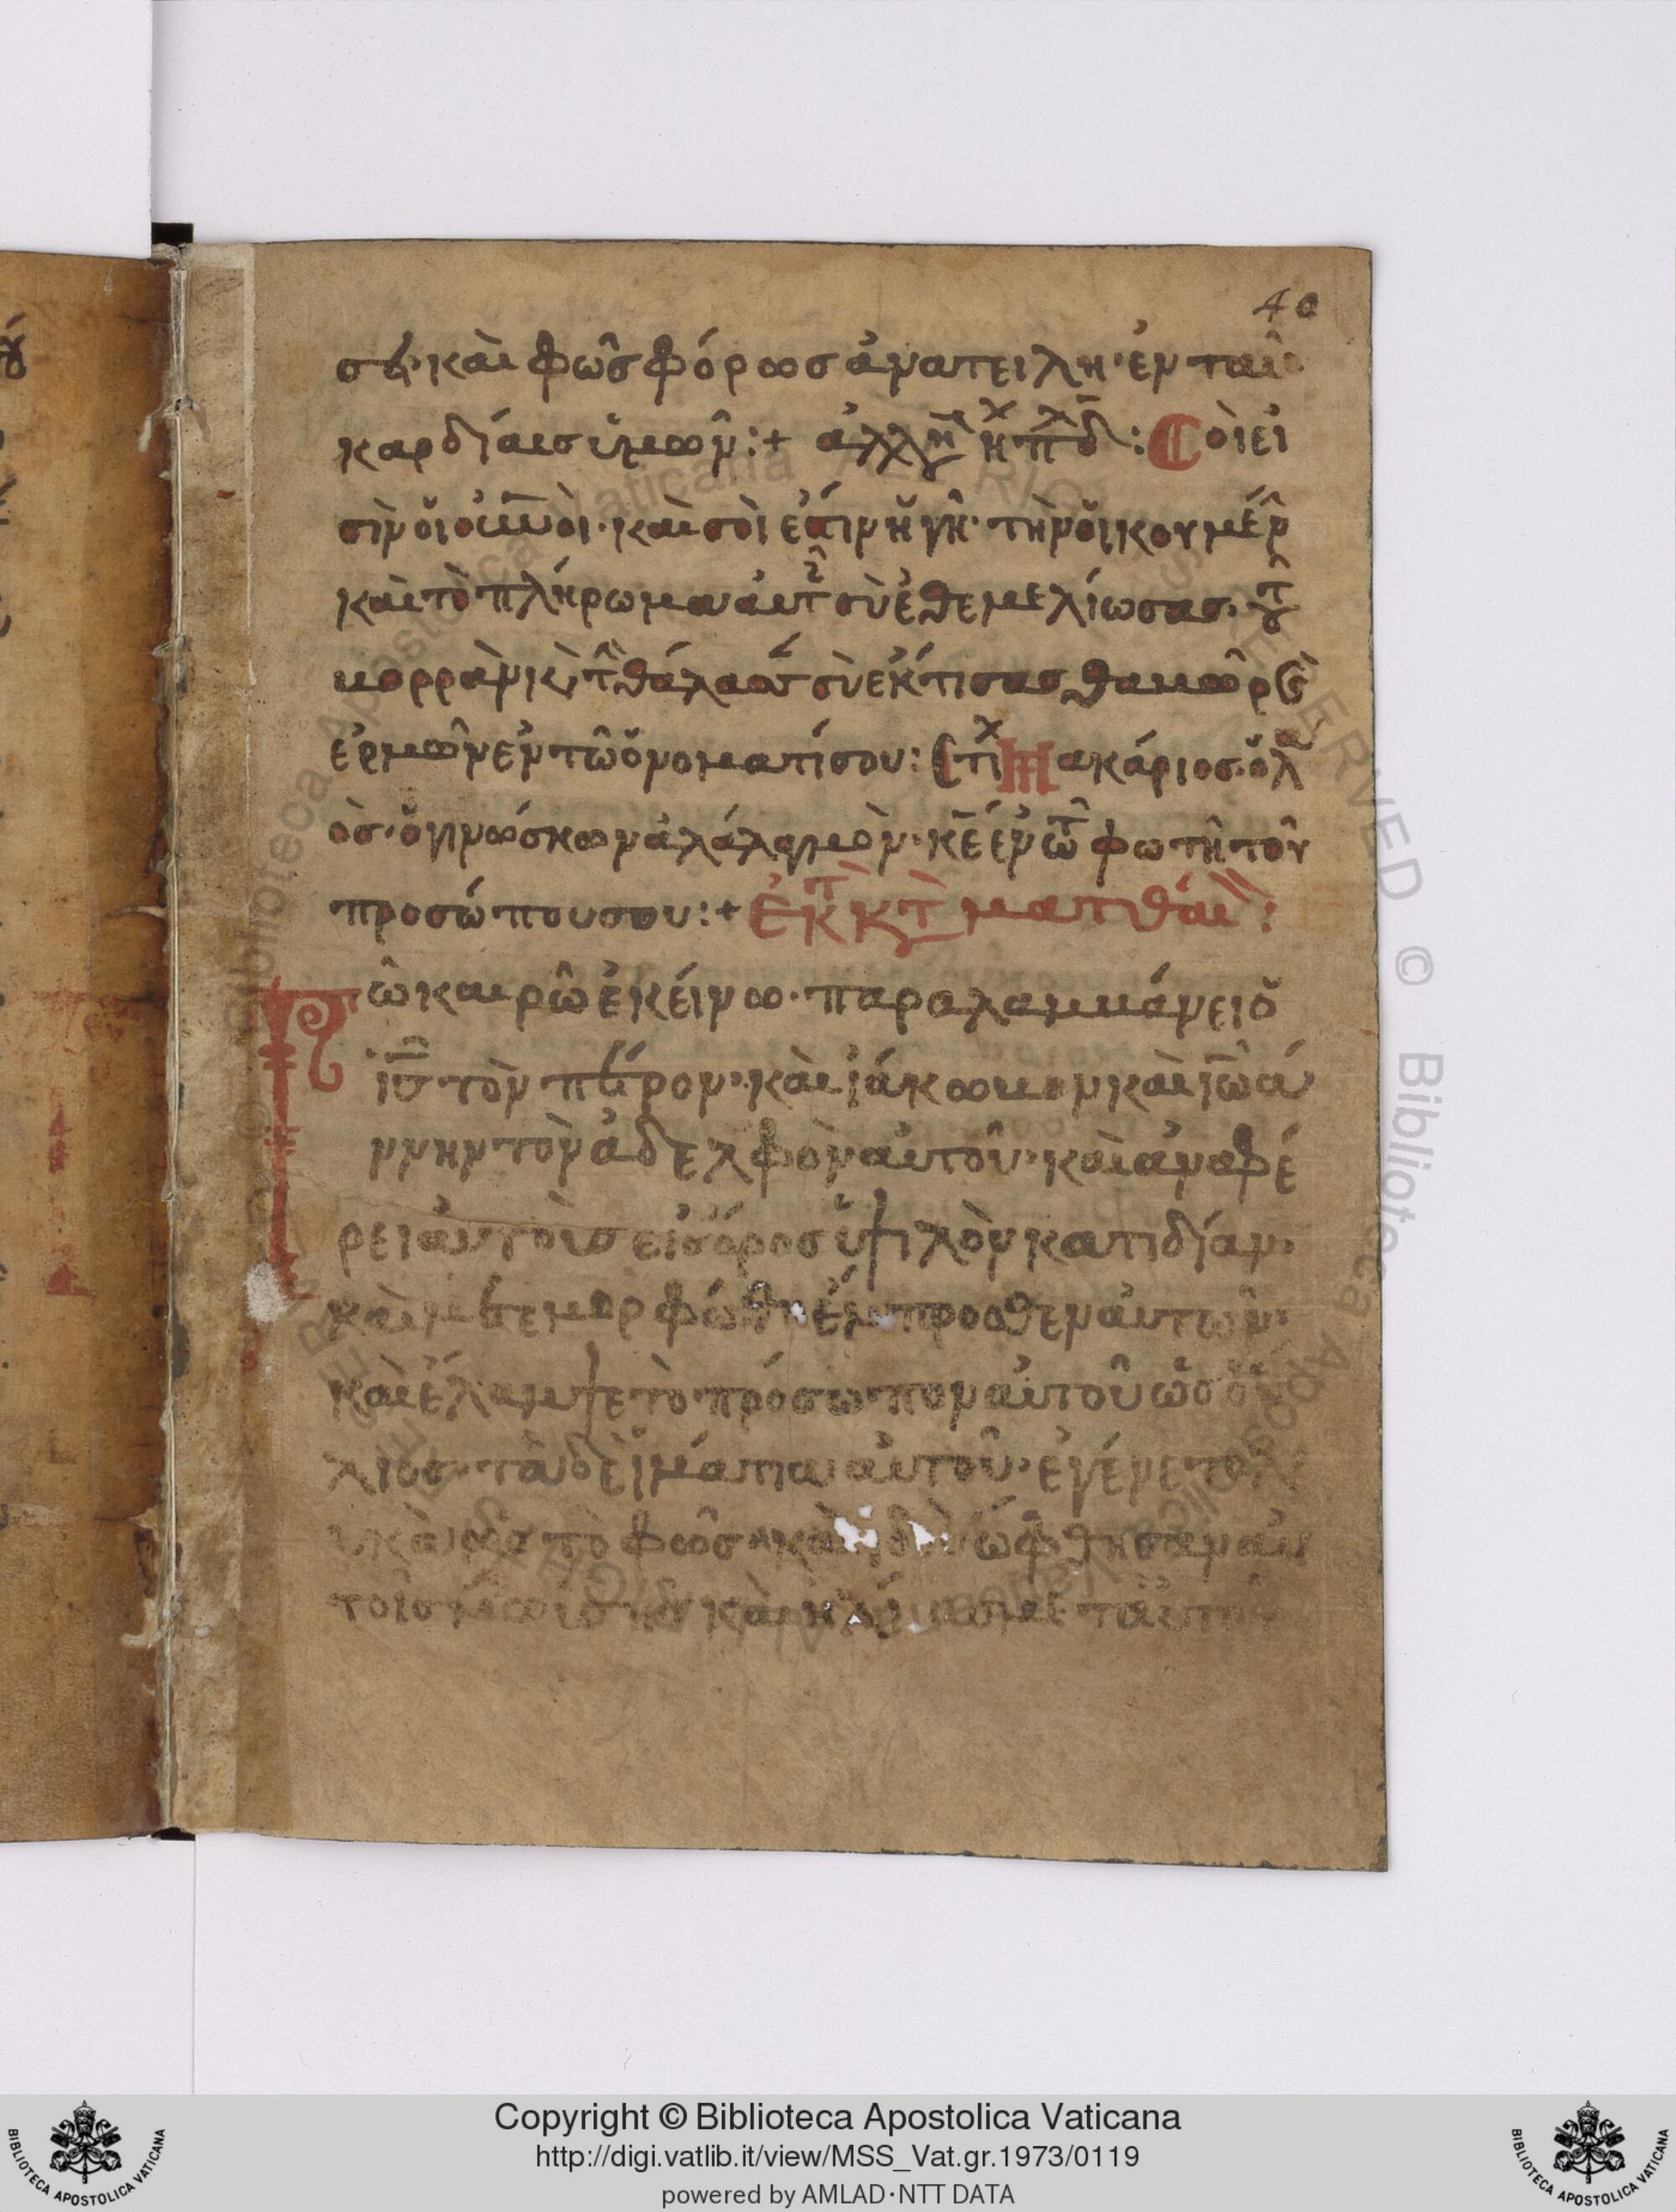 40
ση· καὶ φωσφόρωσ ἀνατείλη· ἐν ταῖσ
καρδίαισ ὑμων:+ ἀλλη ἠχ πδ: Σοὶ εἰ
σὶν ὁι οὐνοὶ· καὶ σοὶ ἐστιν ἡ γῆ· τὴν ὀικουμέν
καὶ τὸ πλήρωμα ἀυτ σὺ ἐθεμελίωσασ· τ
βορρὰν κὲ τ θάλασ σὺ ἐκτισασ θαβωρ κὲ
ἐρμων ἐν τῶ ὀνοματί σου: Στιχ Μακάριοσ ὁ λ
ὸσ· ὁ γινώσκων ἀλάλαγμὸν· κε ἐν τω φωτὶ τοῦ
προσώπου σου:+ Ἐκ τ κτ ματθαι:
Τῶ καιρῶ ἐκείνω· παραλαμβάνει ὁ
ισ τὸν πέτρον· καὶ ἰάκωβον καὶ ἰωά
ννην τὸν ἀδελφὸν αὐτοῦ· καὶ ἀναφέ
ρει ἀυτοὺσ εἰσ όροσ ὑψιλὸν κατιδίαν·
καὶ μετεμορφώθη ἔμπροσθεν ἀυτων·
καὶ ἔλαμψε τὸ πρόσωπον αὐτοῦ ὡσ ὁ
λιοσ· τὰ δὲ ἱμάτια αὐτοῦ· ἐγένετο λ
υκὰ ὡσ τὸ φῶσ· καὶ ἰδοὺ ὤφθησαν ἀυ
τοῖσ μωισ καὶ ἠλίασ μετ ἀυτου
Copyright © Biblioteca Apostolica Vaticana
http://digi.vatlib.it/view/MSS_Vat.gr.1973/0119
powered by AMLAD·NTT DATA
BIBLIOTECA APOSTOLICA VATICANA
BIBLIOTECA APOSTOLICA VATICANA